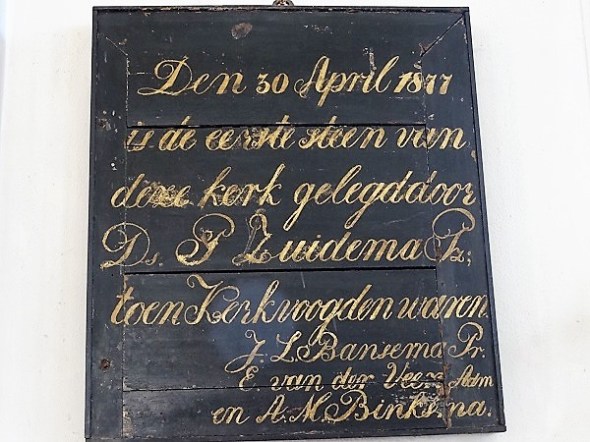 Den 30 April 1877
is de eerste steen van
deze kerk gelegd door
Ds. P Zuidema Pz;
toen Kerkvoogden waren
J. L Bansema Pr.
E van der Veen Adm
en A. M Binksma.